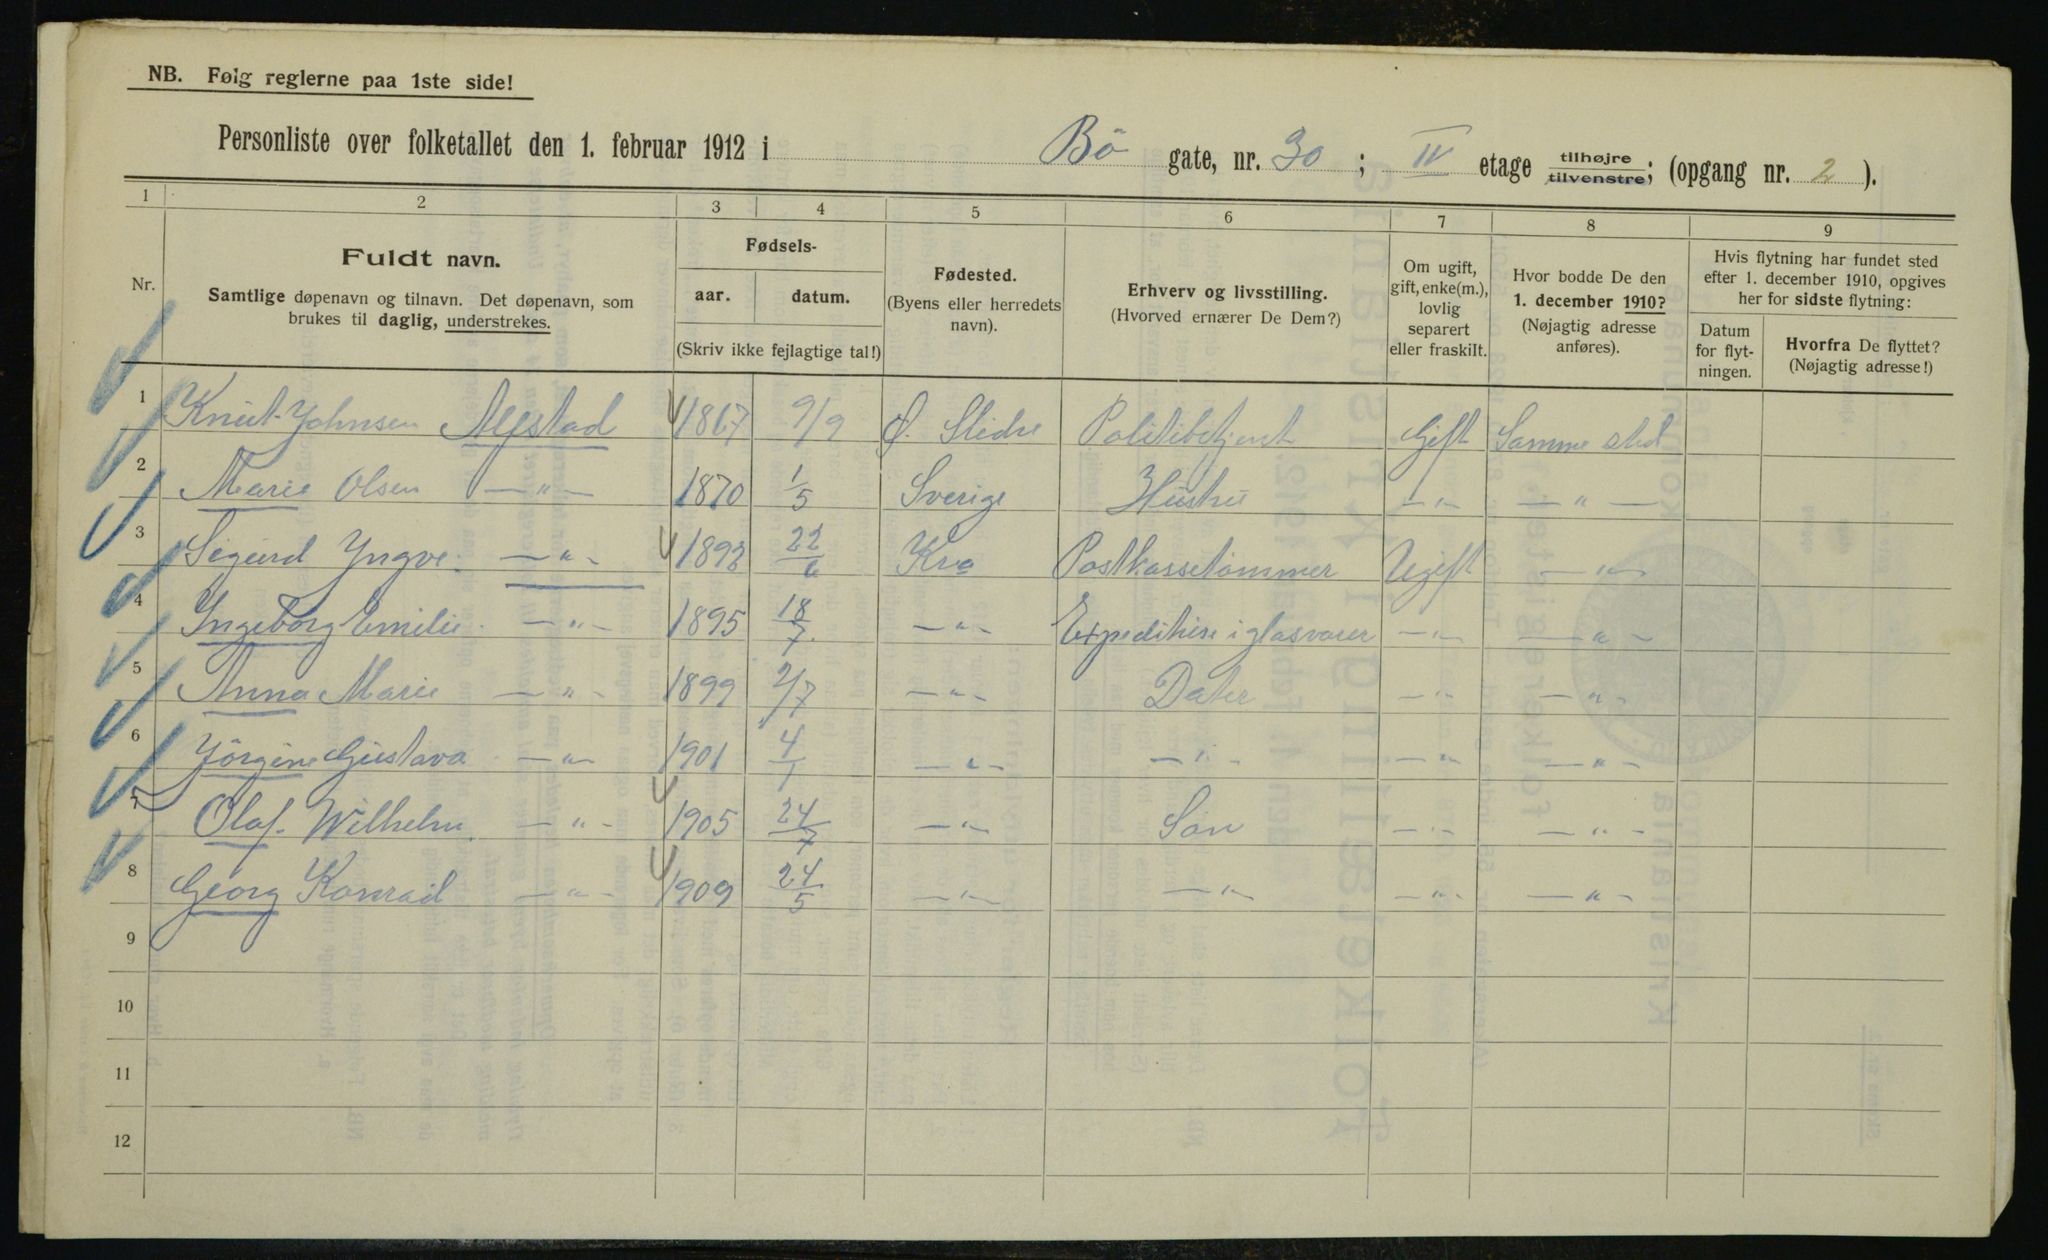 NB. Følg reglerne paa 1ste side!
Personliste over folketallet den 1. februar 1912 i Bö gate, nr. 30 ; IV etage tilhøjre tilvenstre; (opgang nr. 2 ).
1 2 3 4 5 6 7 8 9
Nr.
Fuldt navn.
Samtlige døpenavn og tilnavn. Det døpenavn, som
brukes til daglig, understrekes.
Fødsels-
aar. datum.
(Skriv ikke fejlagtige tal!)
Fødested.
(Byens eller herredets
navn).
Erhverv og livsstilling.
(Hvorved ernærer De Dem?)
Om ugift,
gift, enke(m.),
lovlig
separert
eller fraskilt.
Hvor bodde De den
1. december 1910?
(Nøjagtig adresse
anføres).
Hvis flytning har fundet sted
efter 1. december 1910, opgives
her for sidste flytning:
Datum
for flyt-
ningen.
Hvorfra De flyttet?
(Nøjagtig adresse!)
1 Knut Johnsen 1867 9/9 Ø. Slidre Politibetjent Gift Samme sted
2 Marie Olsen —„— 1870 1/5 Sverige Hustru —„— —„—
3 Sigurd Yngve —„— 1892 22/6 Kra Postkassetömmer Ugift —„—
4 Ingeborg Emilie —„— 1895 18/7 —„— Expeditrise i glasvarer —„— —„—
5 Anna Marie —„— 1899 2/7 —„— Dater —„— —„—
6 Jörgine Gustava —„— 1901 4/1 —„— —„— —„— —„—
7 Olaf Wilhelm —„— 1905 24/7 —„— Sön —„— —„—
8 Georg Konrad —„— 1909 24/5 —„— —„— —„— —„—
9
10
11
12